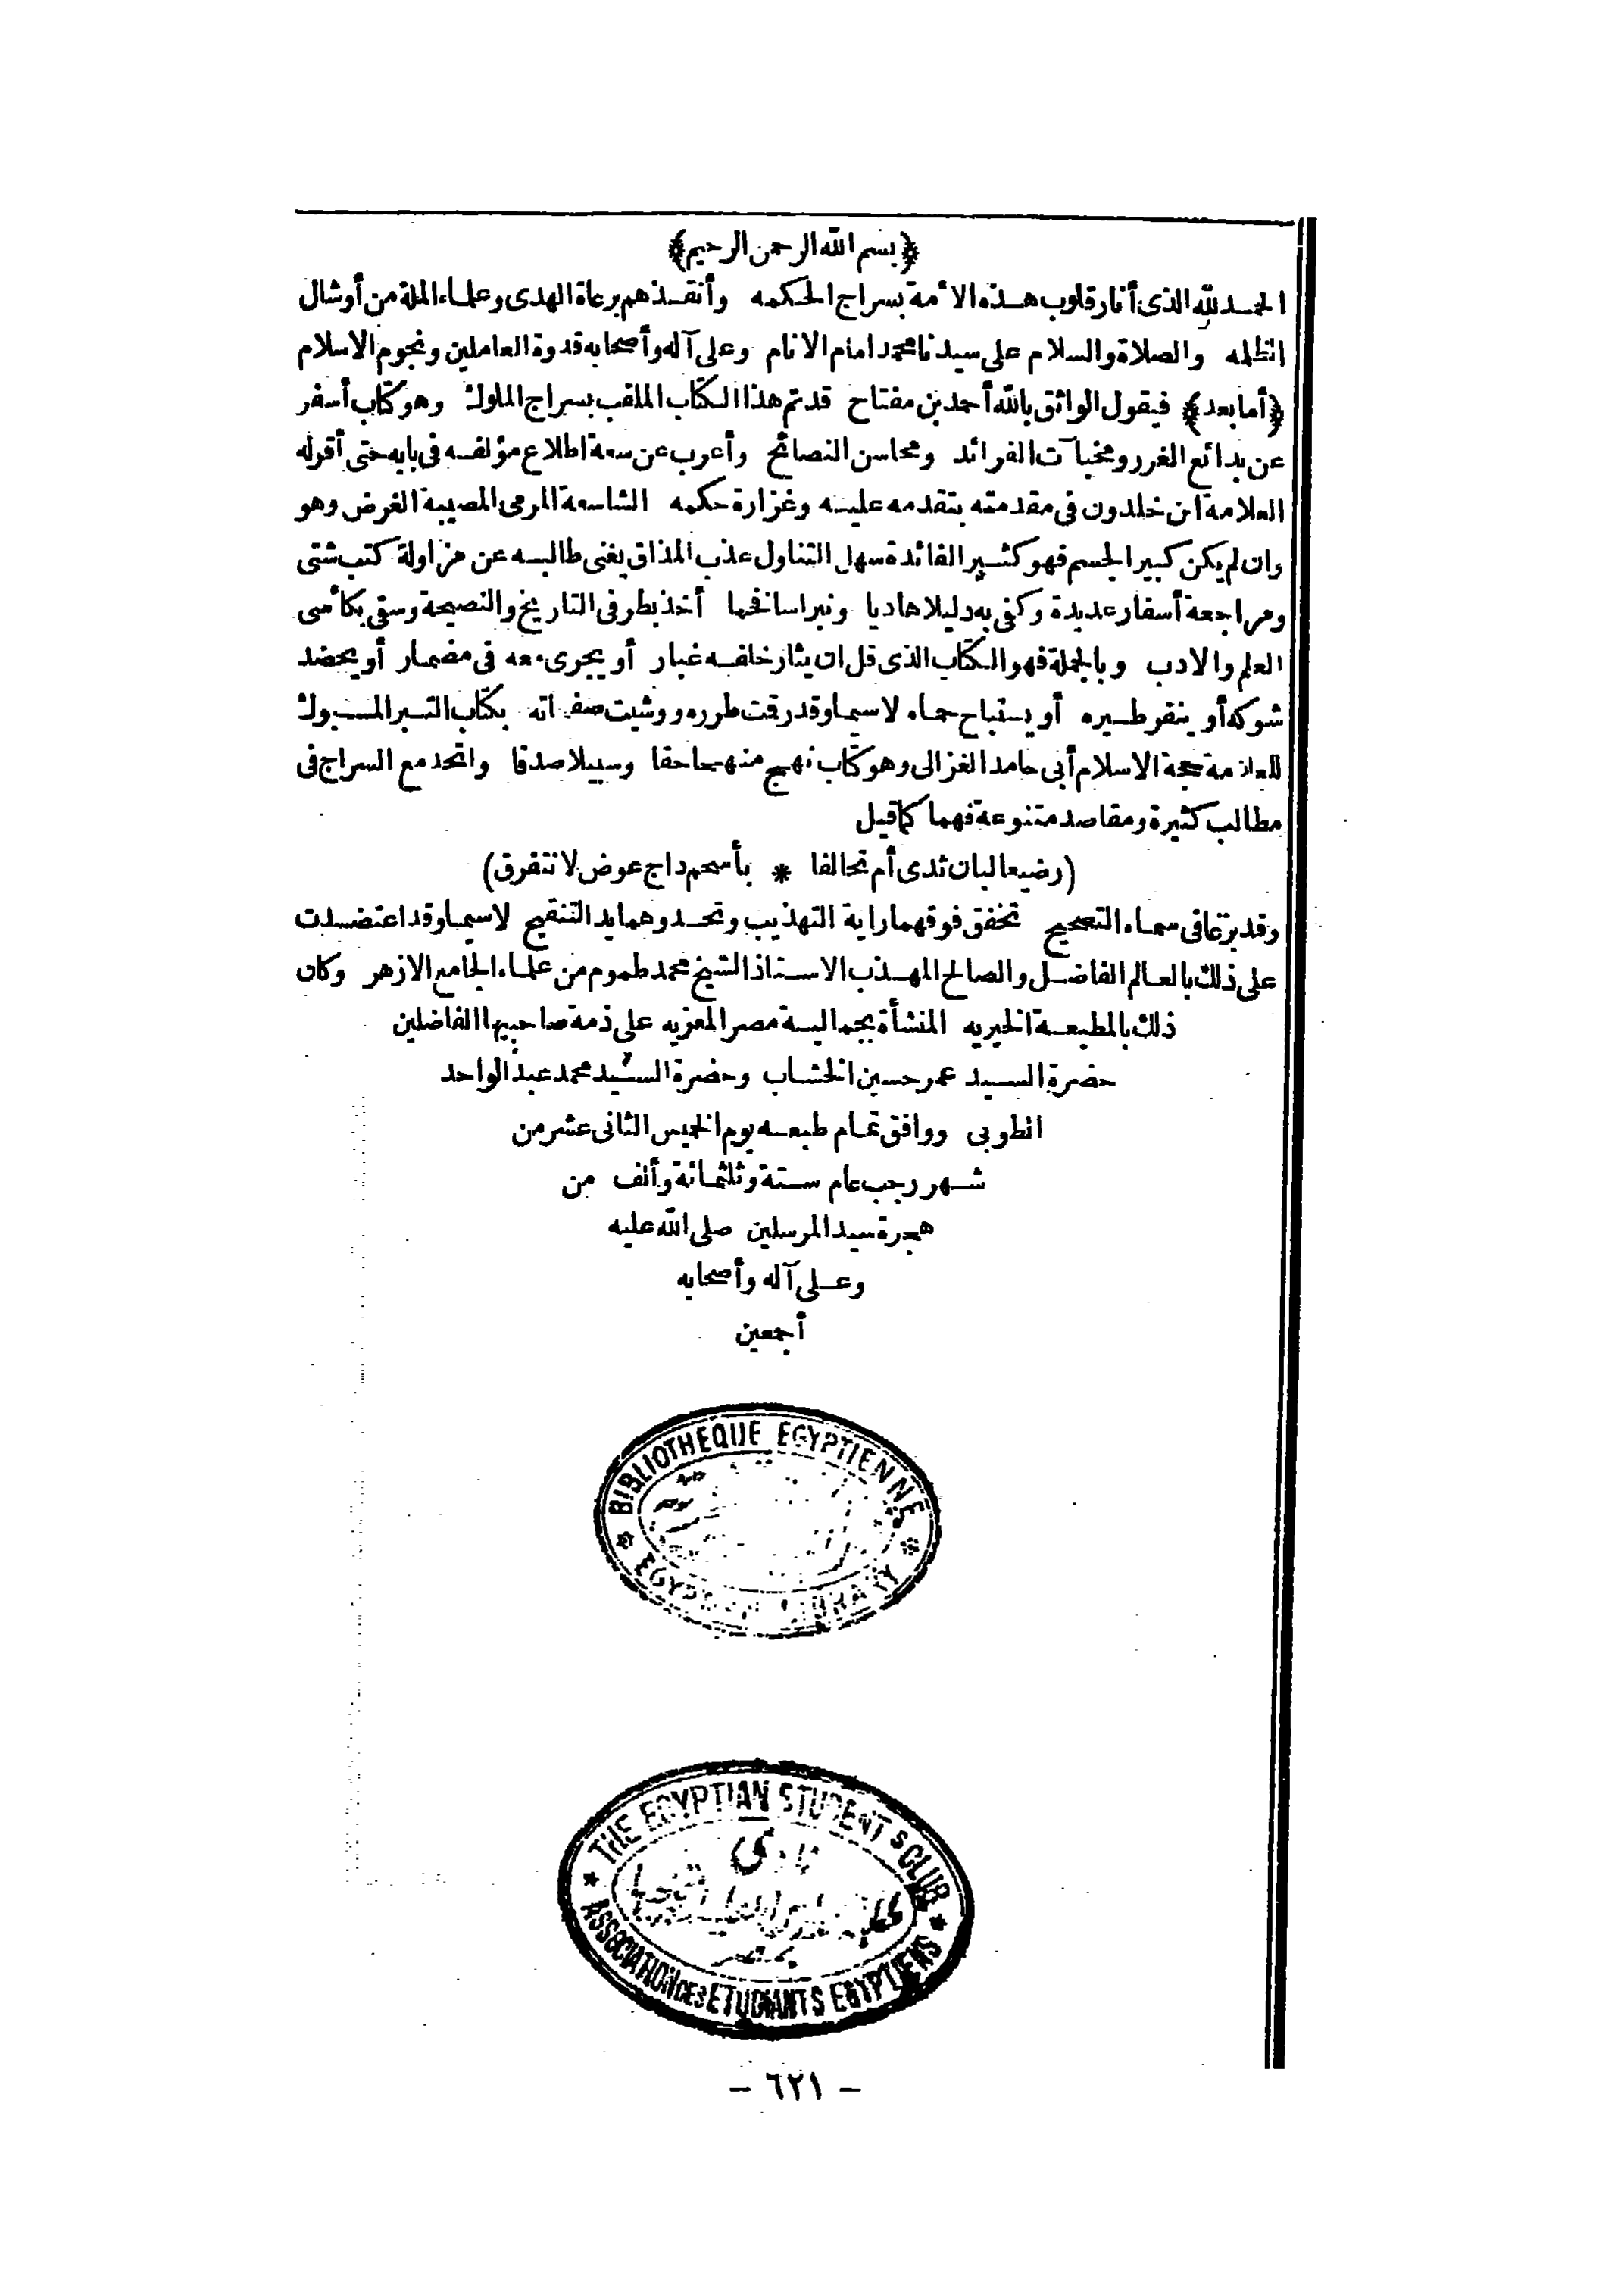 ﴿بسم الله الرحمن الرحيم﴾
الحمد لله الذى أنار قلوب هذه الأمة بسراج الحكمه وأنقذهم برعاة الهدى وعلماء الملة من أوشال
الظلمه والصلاة والسلام على سيدنا محمد امام الانام وعلى آله وأصحابه قدوة العاملين ونجوم الاسلام
﴿أما بعد﴾ فيقول الواثق بالله أحمد بن مفتاح قد تم هذا الكتاب الملقب بسراج الملوك وهو كتاب أسفر
عن بدائع الغرر ومخبآت الفرائد ومحاسن النصائح وأعرب عن سعة اطلاع مؤلفه فى بابه حتى أقر له
العلامة ابن خلدون فى مقدمته بتقدمه عليه وغزارة حكمه الشاسعة المرمى المصيبة الغرض وهو
وان لم يكن كبير الجسم فهو كثير الفائدة سهل التناول عذب المذاق يغنى طالبه عن مزاولة كتب شتى
ومراجعة أسفار عديدة وكفى به دليلا هاديا ونبراسا فخما أخذ بطرفى التاريخ والنصيحة وسقى بكأسى
العلم والادب وبالجملة فهو الكتاب الذى قل ان يثار خلفه غبار أو يجرى معه فى مضمار أو يخضد
شوكه أو ينفر طيره أو يستباح حماه لاسيما وقد رقت طرره ووشيت صفحاته بكتاب التبر المسبوك
للعلامة حجة الاسلام أبى حامد الغزالى وهو كتاب نهج منهجا حقا وسبيلا صدقا واتحد مع السراج فى
مطالب كثيرة ومقاصد متنوعة فهما كما قيل
(رضيعا لبان ثدى أم تحالفا * بأسحم داج عوض لا نتفرق)
وقد بزغا فى سماء التصحيح تخفق فوقهما راية التهذيب وتحدوهما يد التنقيح لاسيما وقد اعتضدت
على ذلك بالعالم الفاضل والصالح المهذب الاستاذ الشيخ محمد طموم من علماء الجامع الازهر وكان
ذلك بالمطبعة الخيريه المنشأة بجمالية مصر المعزيه على ذمة صاحبيها الفاضلين
حضرة السيد عمر حسين الخشاب وحضرة السيد محمد عبد الواحد
الطوبى ووافق تمام طبعه يوم الخميس الثانى عشر من
شهر رجب عام ستة وثلثمائة وألف من
هجرة سيد المرسلين صلى الله عليه
وعلى آله وأصحابه
أجمعين
BIBLIOTHEQUE EGYPTIENNE
EGYPTIAN LIBRARY
THE EGYPTIAN STUDENTS CLUB
نادى
ASSOCIATION DES ETUDIANTS EGYPTIENS
- ٦٢١ -